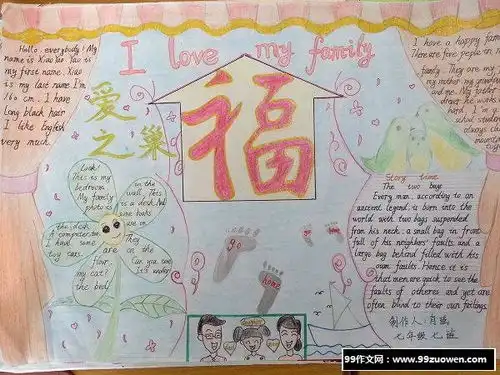 I love my family
Hello, everybody! My
name is Xiao Yao. Yao is
my first name. Xiao
is my last name. I'm
160 cm. I have
long black hair
I like English
very much.
I have a happy fam
There are five people in
family. They are my
my mother my grandm
and me. My father
driver he works
hard.
school student
always
福
爱
之巢
Look!
This is my
bedroom.
My family
photo is
on the wall. This
is a desk. And
some books
are on
the desk.
A computer, too.
I have some
toy cars.
They
are on the
floor.
my cat?
Can you see
It's under
the bed!
go
home
Story time
The two bags
Every man, according to an
ancient legend, is born into the
world with two bags suspended
from his neck: a small bag in front
full of his neighbors' faults, and a
large bag behind filled with his
own faults. Hence it is
that men are quick to see the
faults of others and yet are
often blind to their own failings.
制作人:肖瑶
七年级七班
99作文网:www.99zuowen.com